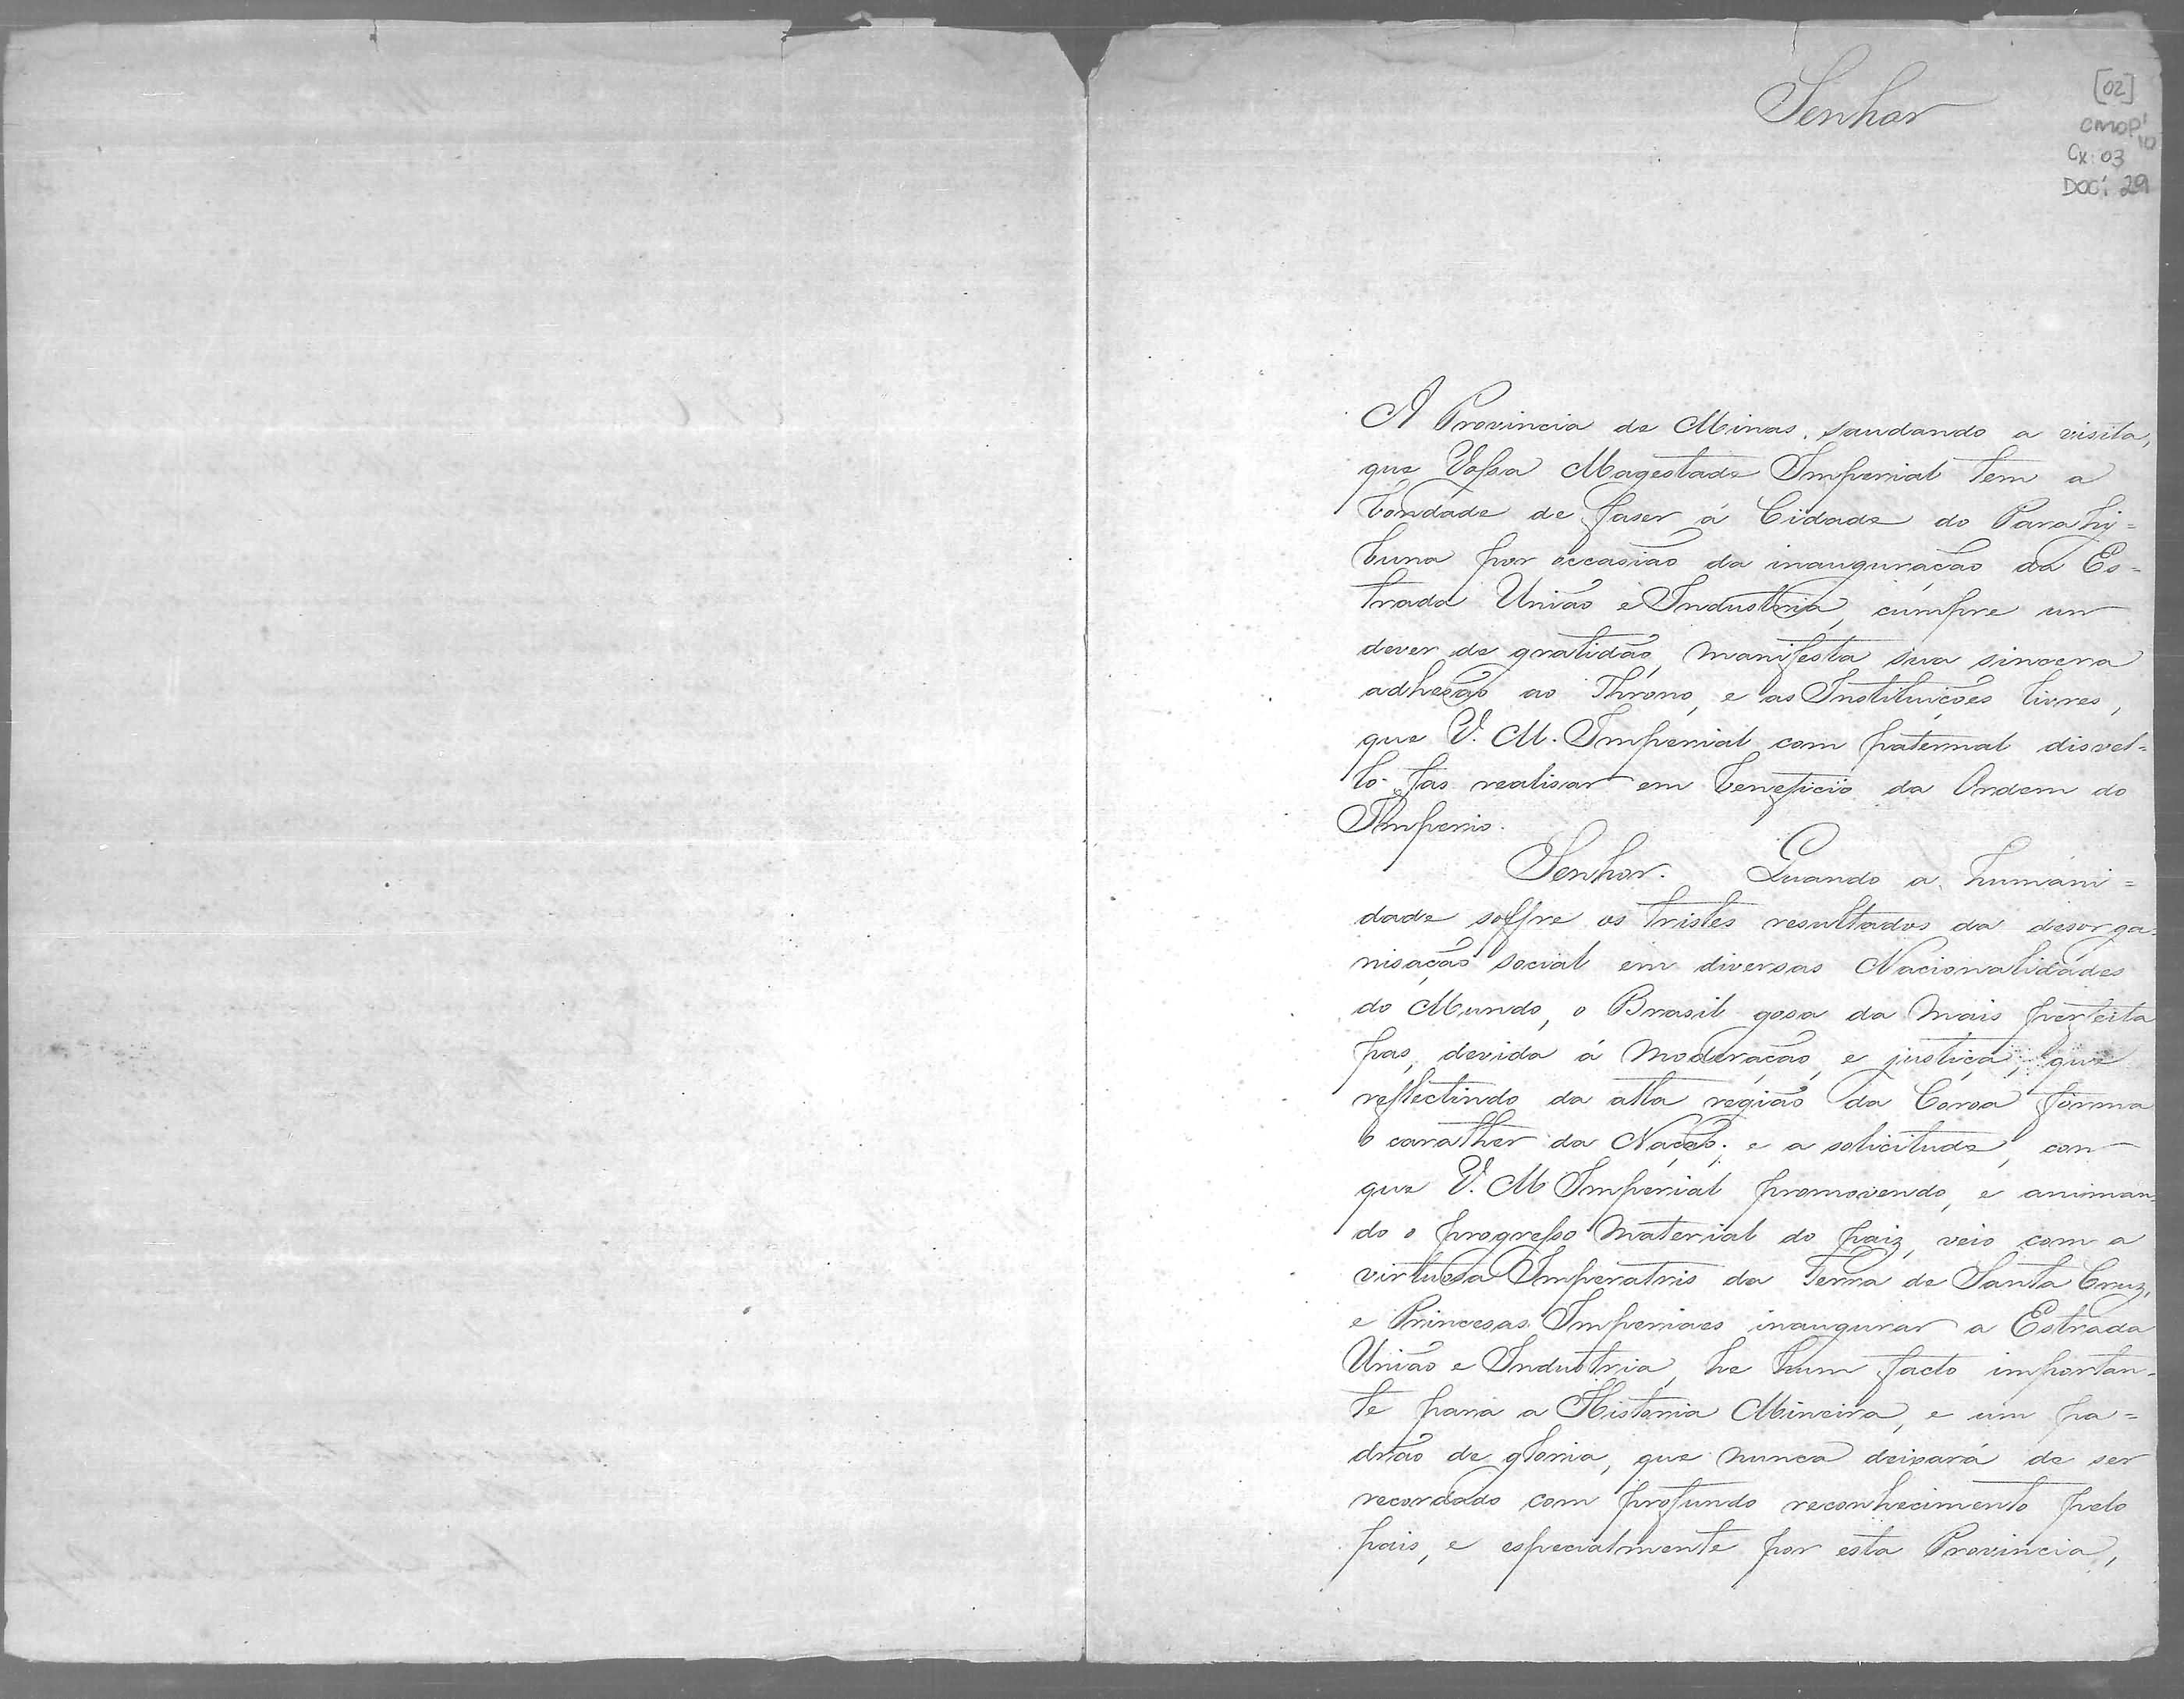 Senhor
[02]
CMOP'
10
Cx: 03
DOC: 29
A Provincia de Minas, saudando a visita,
que Vossa Magestade Imperial tem a
bondade de faser á Cidade do Parahy=
buna por occasião da inauguração da Es=
trada União e Industria, cumpre um
dever de gratidão, manifesta sua sincera
adhesão ao Throno, e as Instituições livres,
que V. M. Imperial com paternal disvel=
lo fas realisar em beneficio da Ordem do
Imperio.
Senhor. Quando a humani=
dade soffre os tristes resultados da desorga=
nisação social em diversas Nacionalidades
do Mundo, o Brasil gosa da mais perfeita
pas, devida á moderação, e justiça, que
reflectindo da alta região da Coroa forma
o carather da Nação; e a solicitude, com
que V. M Imperial promovendo, e animan=
do o progresso material do paiz, veio com a
virtuosa Imperatris da Terra de Santa Cruz,
e Princesas Imperiaes inaugurar a Estrada
União e Industria, he hum facto importan=
te para a Historia Mineira, e um pa=
drão de gloria, que nunca deixará de ser
recordado com profundo reconhecimento pelo
pais, e especialmente por esta Provincia,